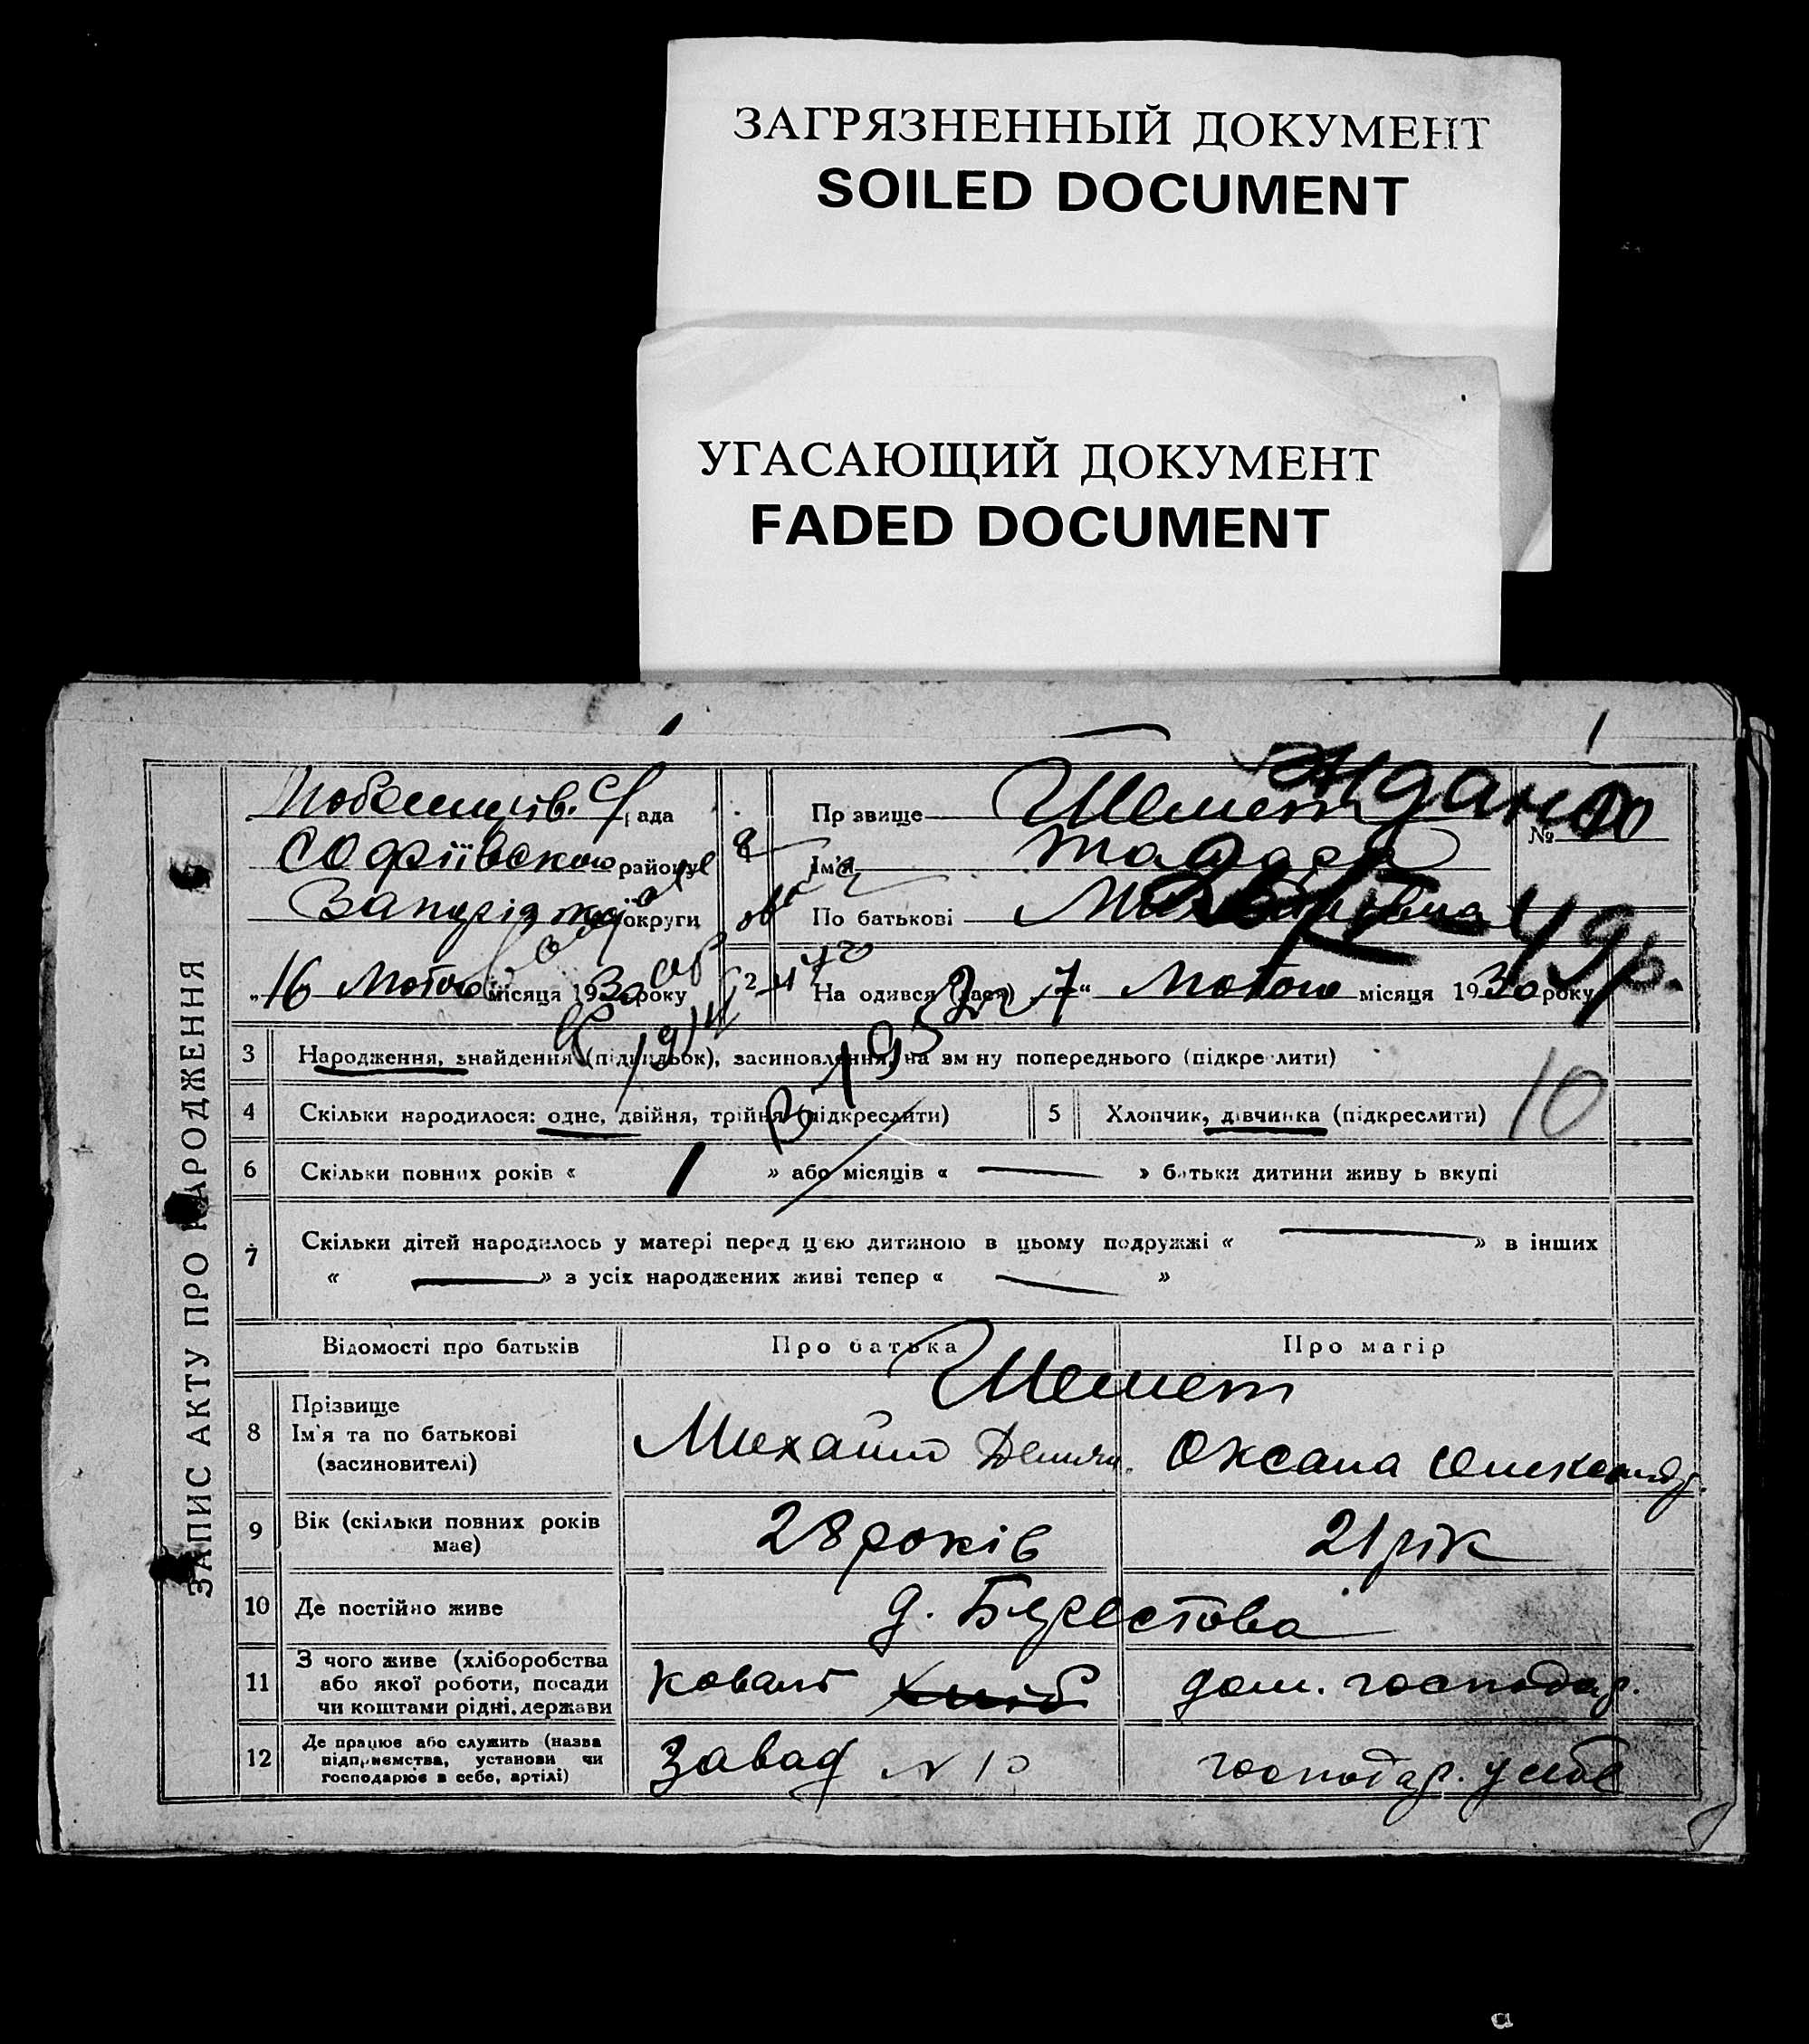 ЗАГРЯЗНЕННЫЙ ДОКУМЕНТ
SOILED DOCUMENT
УГАСАЮЩИЙ ДОКУМЕНТ
FADED DOCUMENT
ЗАПИС АКТУ ПРО НАРОДЖЕННЯ
рада
Софіївського району
округи
"16 Лютого місяця 1930 року
Пр звище Шемет
№ 10
Ім'я
По батькові Михайлівна
На одився (лася) "7" Лютого місяця 1930 року
49 р.
3 Народження, знайдення (підкидьок), засиновлення, на зм ну попереднього (підкре лити)
4 Скільки народилося: одне, двійня, трійня (підкреслити) 5 Хлопчик, дівчинка (підкреслити)
10
6 Скільки повних років « 1 » або місяців « — » батьки дитини живу ь вкупі
7 Скільки дітей народилось у матері перед цією дитиною в цьому подружжі « — » в інших
« — » з усіх народжених живі тепер « — »
Відомості про батьків Про батька Про матір
Шемет
8 Прізвище
Ім'я та по батькові
(засиновителі)
Михайло Оксана Олександр.
9 Вік (скільки повних років
має)
28 років 21 рік
10 Де постійно живе д. Берестова
11 З чого живе (хліборобства
або якої роботи, посади
чи коштами рідні, держави
Коваль дом. господар.
12 Де працює або служить (назва
підприємства, установи чи
господарює в себе, артілі)
Завод N 10 господар. у себе